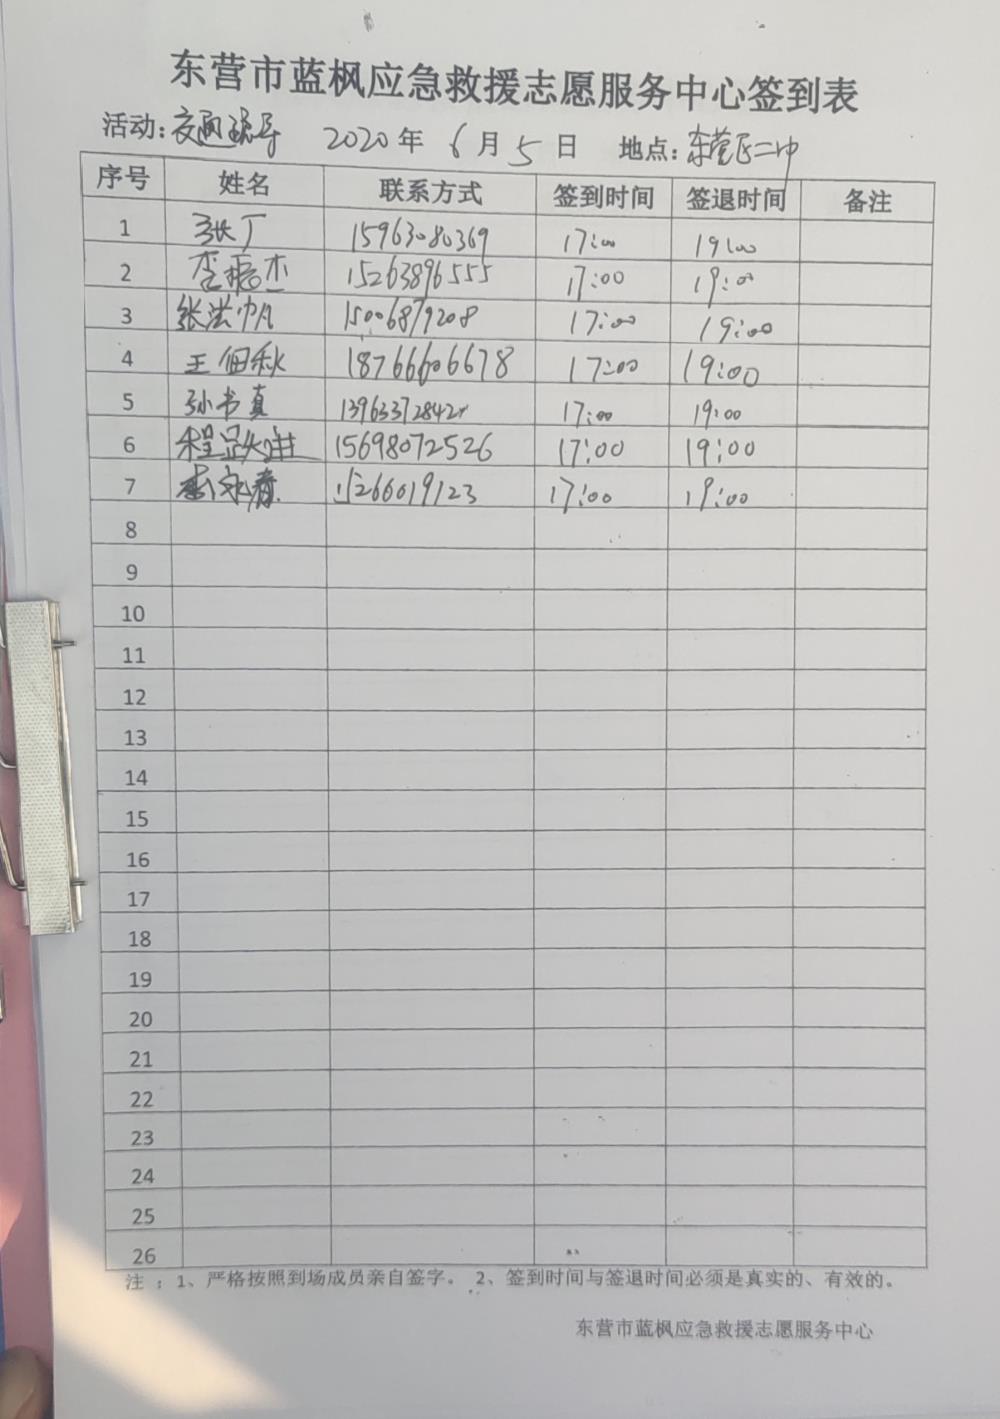 东营市蓝枫应急救援志愿服务中心签到表
活动：交通疏导 2020年 6月 5日 地点：东营区二中
序号 姓名 联系方式 签到时间 签退时间 备注
1 张广 15963080369 17:00 19:00
2 15263896555 17:00 19:00
3 张洪帆 15006879208 17:00 19:00
4 王佃秋 18766606678 17:00 19:00
5 孙书真 13963372842 17:00 19:00
6 程 15698072526 17:00 19:00
7 李永春 15266019123 17:00 19:00
8
9
10
11
12
13
14
15
16
17
18
19
20
21
22
23
24
25
26
注：1、严格按照到场成员亲自签字。 2、签到时间与签退时间必须是真实的、有效的。
东营市蓝枫应急救援志愿服务中心